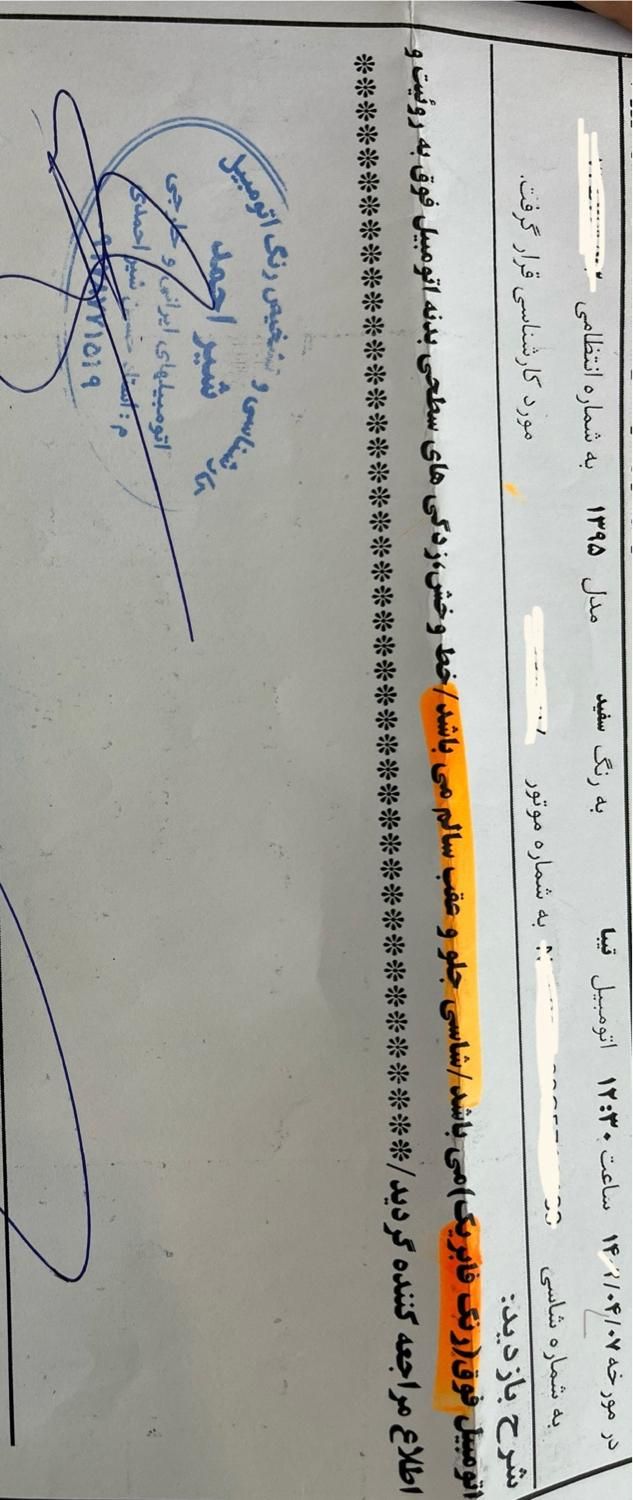 در مورخه ۱۴۰۲/۰۴/۰۷ ساعت ۱۲:۳۰ اتومبیل تیبا به رنگ سفید مدل ۱۳۹۵ به شماره انتظامی
به شماره شاسی به شماره موتور مورد کارشناسی قرار گرفت.
شرح بازدید:
اتومبیل فوق(رنگ فابریک)می باشد/شاسی جلو و عقب سالم می باشد/خط وخش،زدگی های سطحی بدنه اتومبیل فوق به روئیت و
اطلاع مراجعه کننده گردید/********************************
کارشناسی و تشخیص رنگ اتومبیل
شیر احمد
اتومبیلهای ایرانی و خارجی
م: استاد حسن شیر احمدی